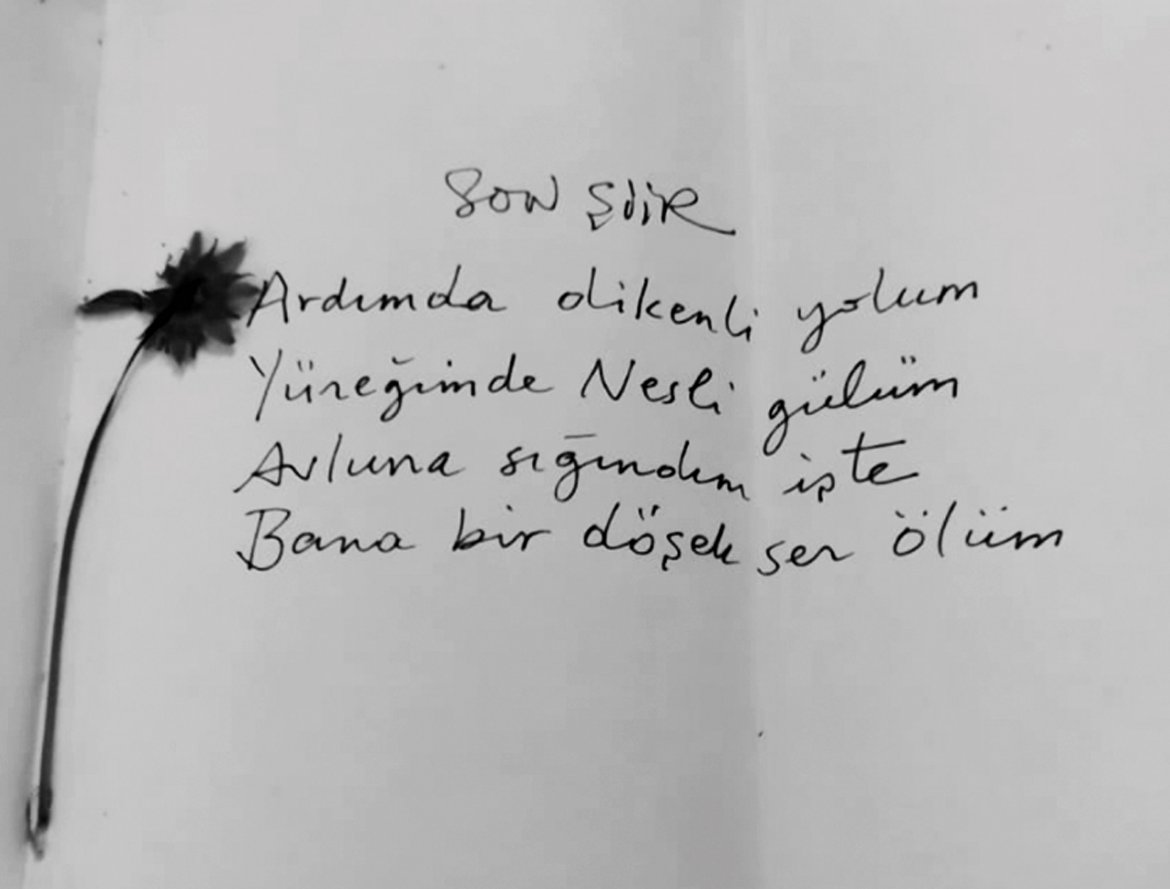 SON ŞİİR
Ardımda dikenli yolum
Yüreğimde Nesli gülüm
Avluna sığındım işte
Bana bir döşek ser ölüm